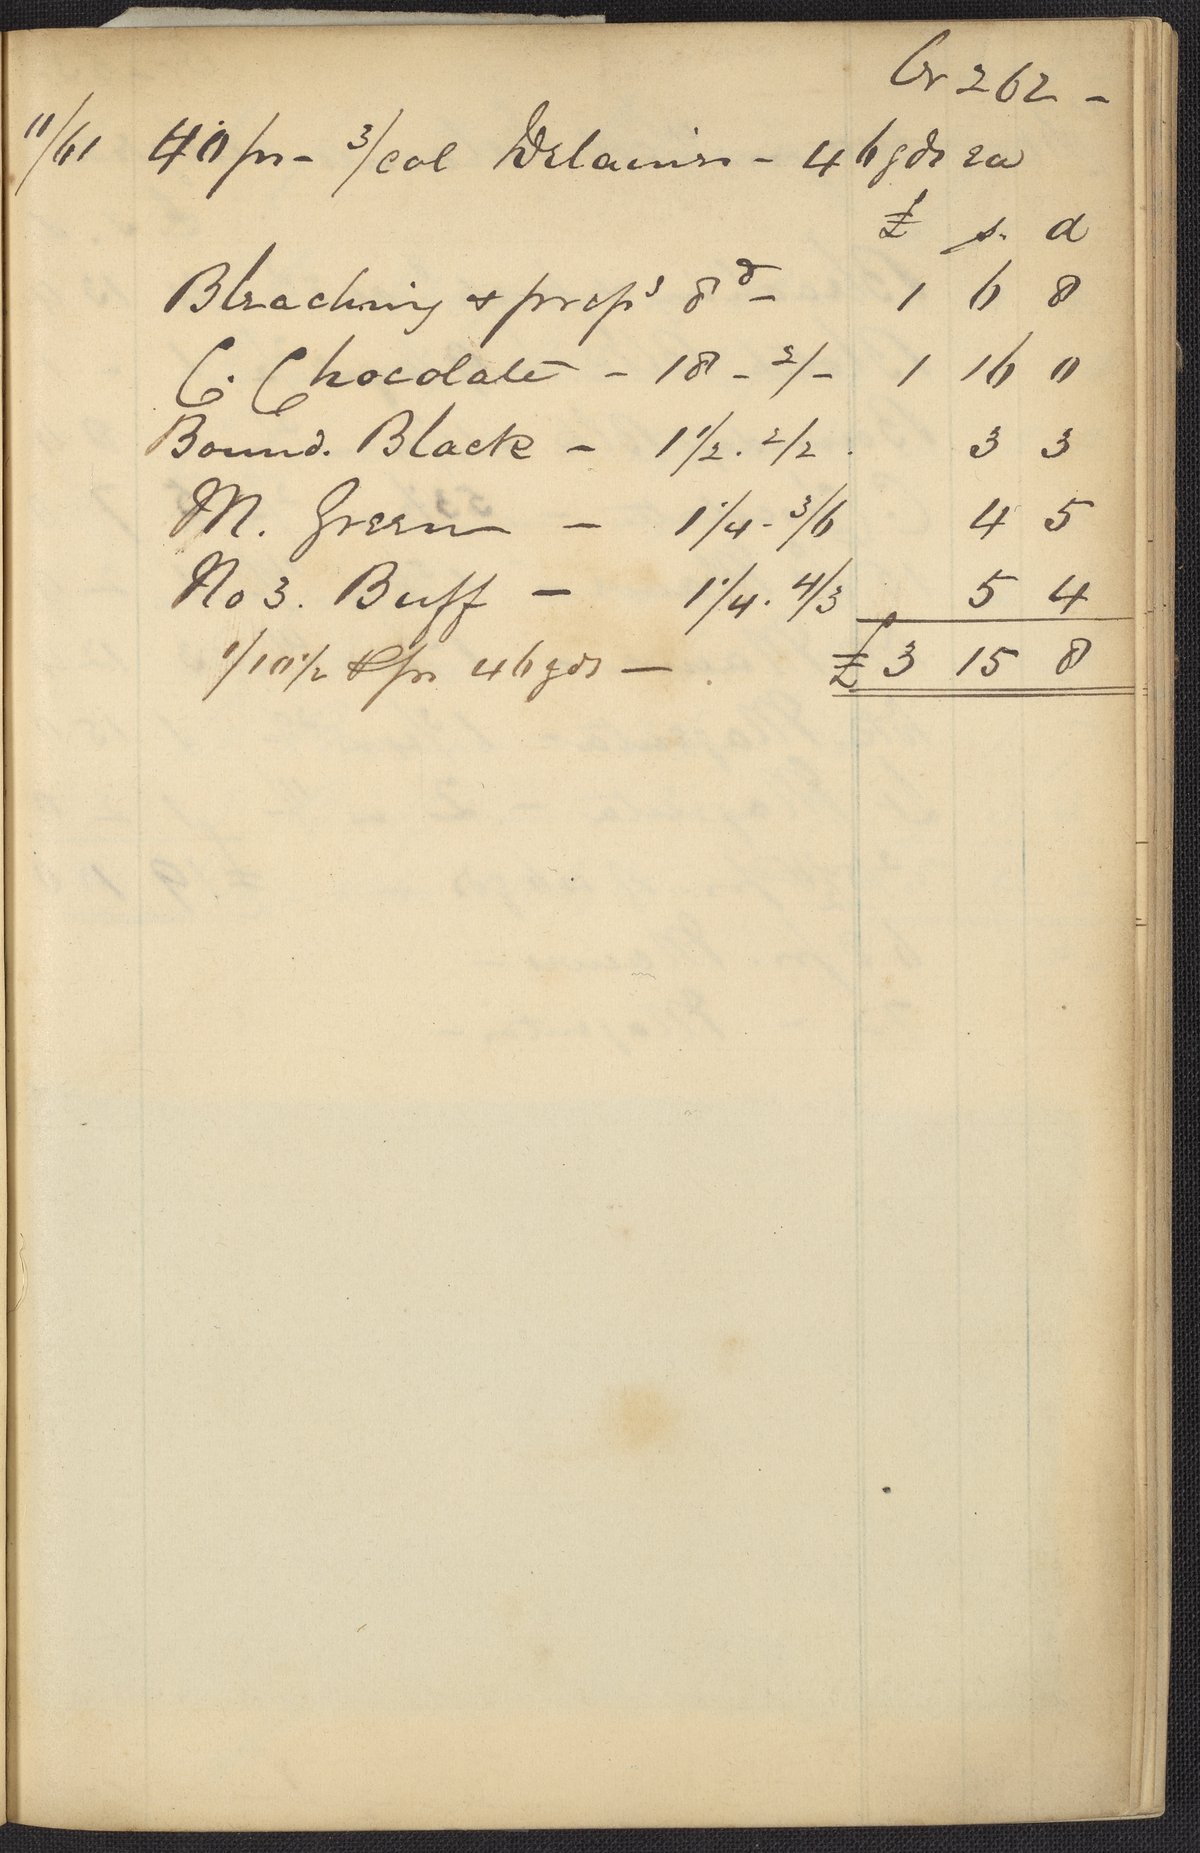 Cr 262 -
11/61 40 ps - 3/col Delaines - 46 yds ea
£ s. d
Bleaching & props 8d - 1 6 8
C. Chocolate - 18 - 2/- 1 16 0
Bound. Black - 1 1/2 . 2/2 . 3 3
M. Green - 1 1/4 - 3/6 4 5
No 3. Buff - 1 1/4 . 4/3 5 4
1/10 1/2 ps 46 yds - £3 15 8